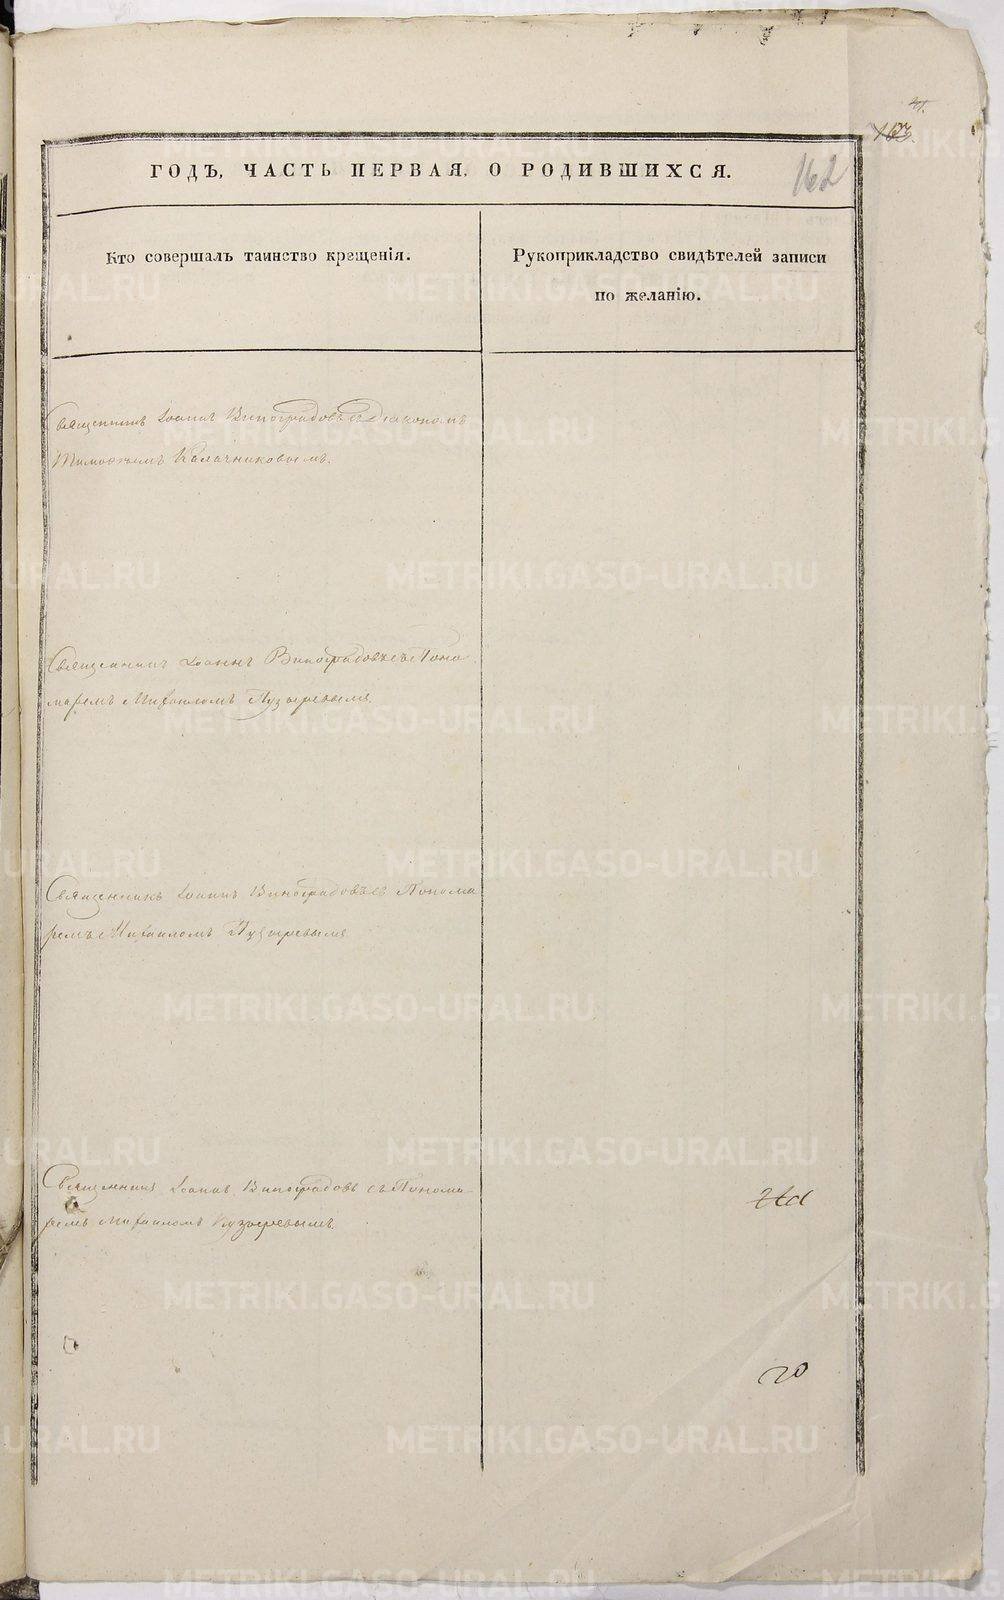 162
ГОДЪ, ЧАСТЬ ПЕРВАЯ, О РОДИВШИХСЯ.
Кто совершалъ таинство крещенія.
Рукоприкладство свидѣтелей записи
по желанію.
Священникъ Іоаннъ Виноградовъ съ Діакономъ
Тимофеемъ Калачниковымъ.
Священникъ Іоаннъ Виноградовъ съ Поно
маремъ Михаиломъ Пузыревымъ.
Священникъ Іоаннъ Виноградовъ съ Понома
ремъ Михаиломъ Пузыревымъ
Священникъ Іоаннъ Виноградовъ съ Понома
ремъ Михаиломъ Пузыревымъ.
METRIKI.GASO-URAL.RU